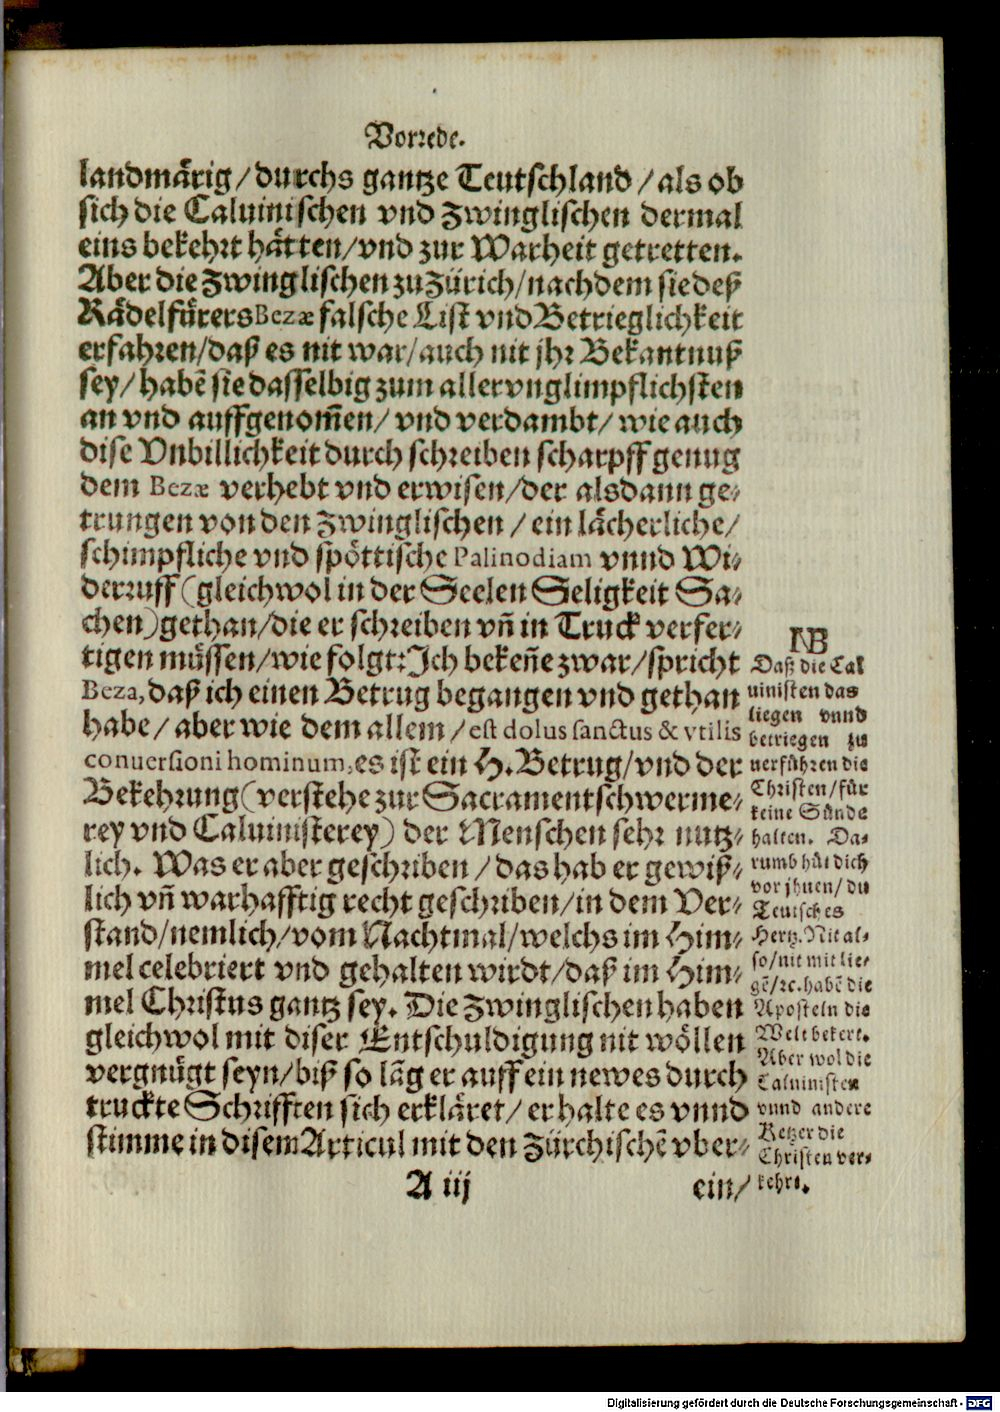 Vorrede.
landmärig/durchs gantze Teutschland/als ob
sich die Caluinischen vnd Zwinglischen dermal
eins bekehrt hätten/vnd zur Warheit getretten.
Aber die Zwinglischen zu Zürich/nachdem sie deß
Rädelfürers Bezæ falsche List vnd Betrieglichkeit
erfahren/daß es nit war/auch nit jhr Bekantnuß
sey/habẽ sie dasselbig zum allervnglimpflichsten
an vnd auffgenom̃en/vnd verdambt/wie auch
dise Vnbillichkeit durch schreiben scharpff genug
dem Bezæ verhebt vnd erwisen/der alsdann ge-
trungen von den Zwinglischen/ein lächerliche/
schimpfliche vnd spöttische Palinodiam vnnd Wi-
derruff(gleichwol in der Seelen Seligkeit Sa-
chen)gethan/die er schreiben vñ in Truck verfer-
tigen müssen/wie folgt: Ich bekeñe zwar/spricht
Beza, daß ich einen Betrug begangen vnd gethan
habe/aber wie dem allem/est dolus sanctus & vtilis
conuersioni hominum, es ist ein H. Betrug/vnd der
Bekehrung(verstehe zur Sacramentschwerme-
rey vnd Caluinisterey) der Menschen sehr nutz-
lich. Was er aber geschriben/das hab er gewiß-
lich vñ warhafftig recht geschriben/in dem Ver-
stand/nemlich/vom Nachtmal/welchs im Him-
mel celebriert vnd gehalten wirdt/daß im Him-
mel Christus gantz sey. Die Zwinglischen haben
gleichwol mit diser Entschuldigung nit wöllen
vergnügt seyn/biß so lãg er auff ein newes durch
truckte Schrifften sich erkläret/er halte es vnnd
stimme in disem Articul mit den Zürchischẽ vber-
A iij ein/
NB
Daß die Cal
uinisten das
liegen vnnd
betriegen zu
uerführen die
Christen/für
keine Sünde
halten. Da-
rumb hüt dich
vor jhnen/du
Teutsches
Hertz. Nit al-
so/nit mit lie-
gẽ/ꝛc. habẽ die
Aposteln die
Welt bekert.
Aber wol die
Caluinisten
vnnd andere
Ketzer die
Christen ver-
kehrt.
Digitalisierung gefördert durch die Deutsche Forschungsgemeinschaft - DFG